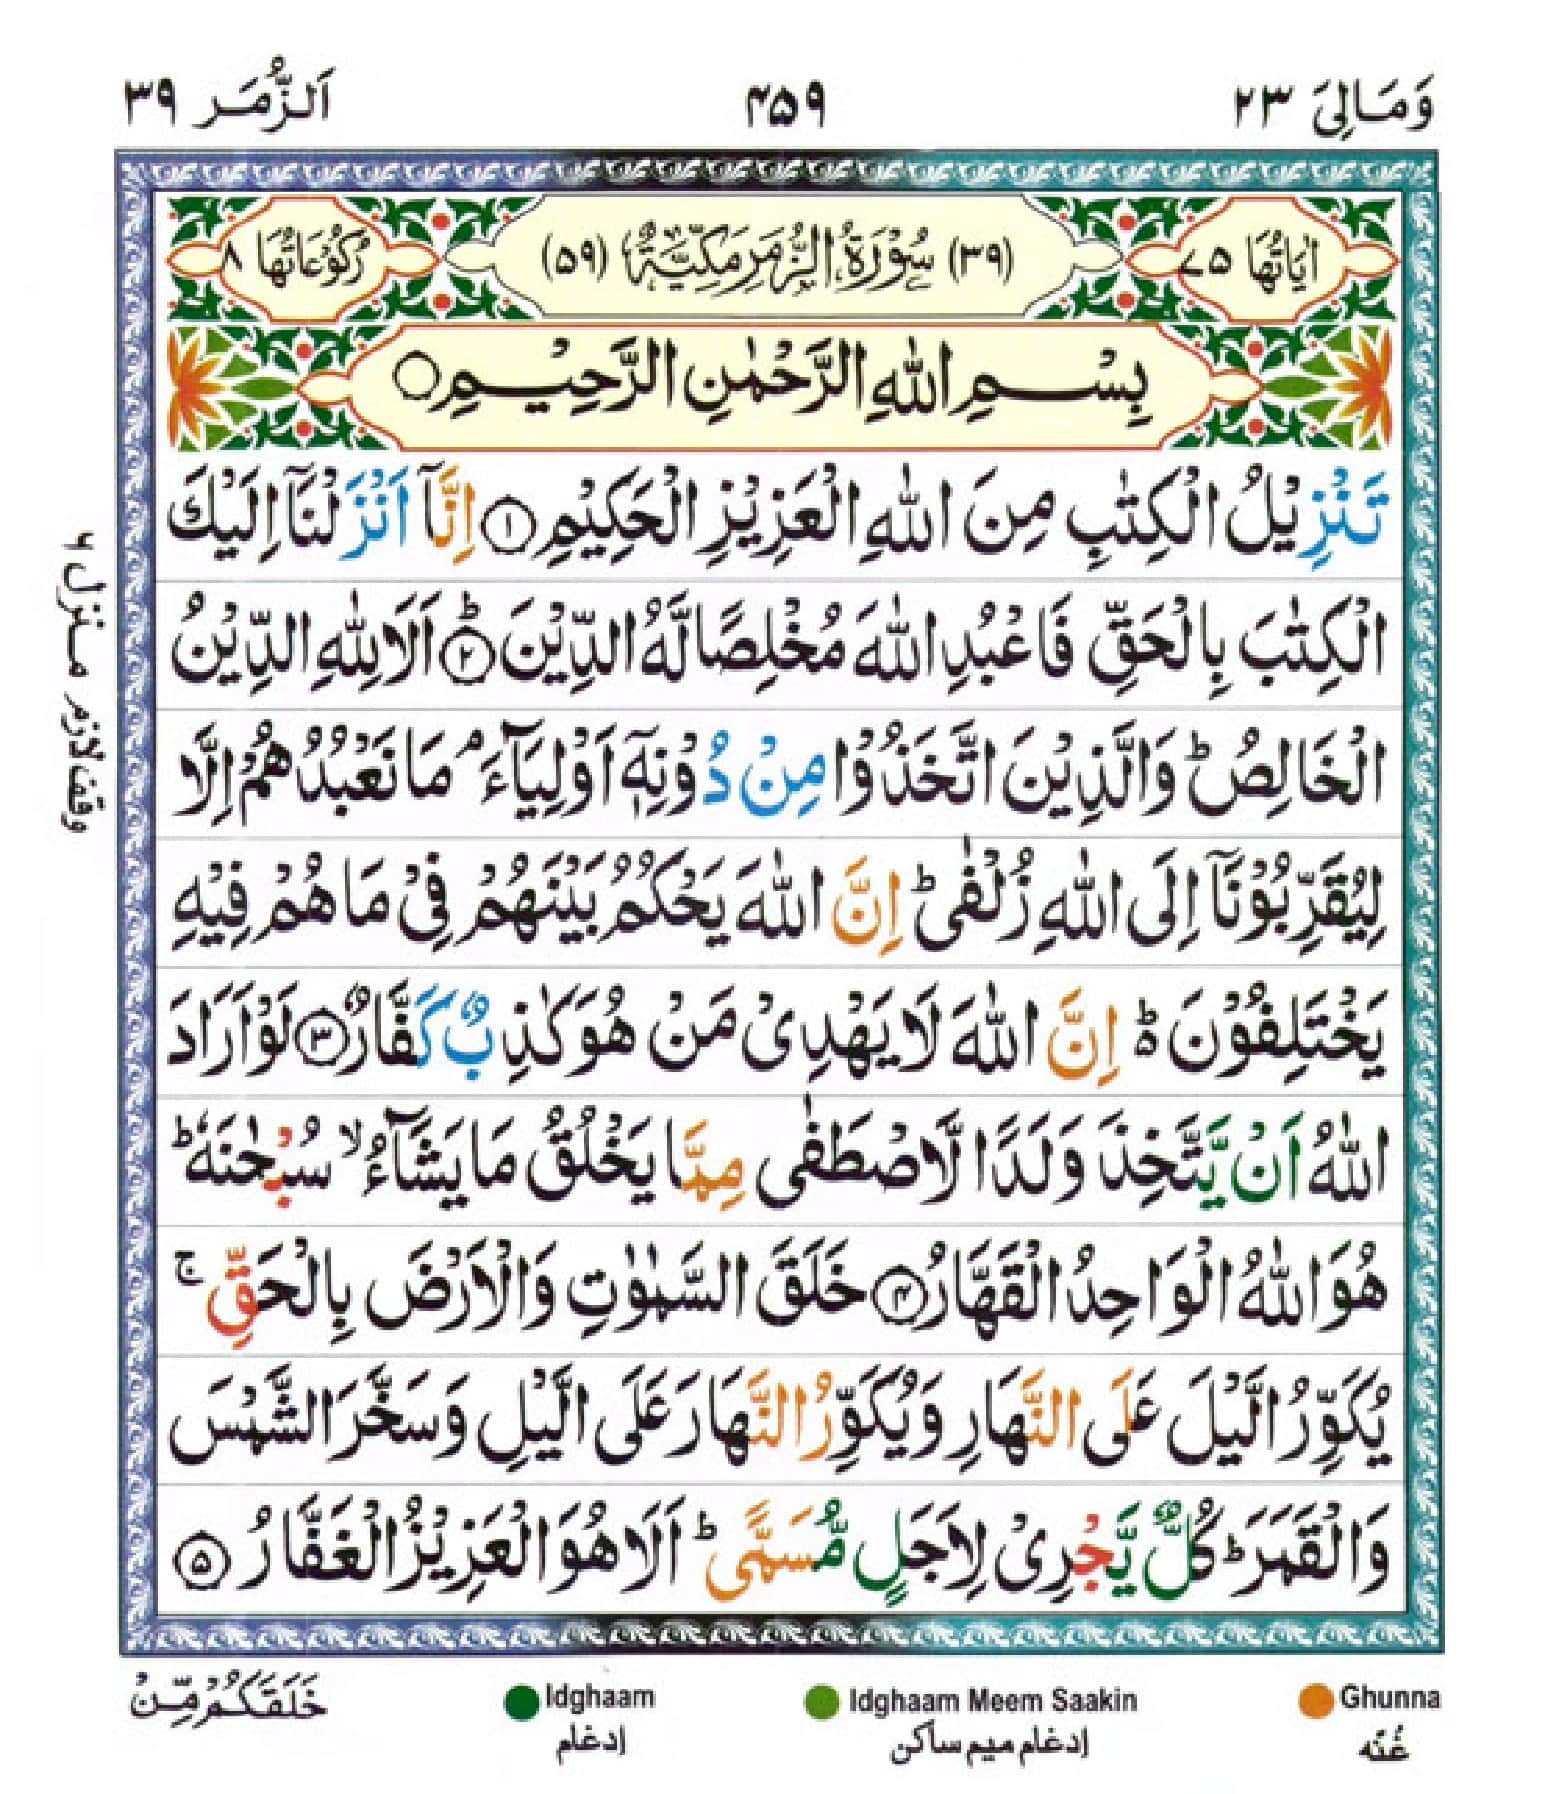 وَمَالِیَ ۲۳
۴۵۹
اَلزُّمَر ۳۹
اٰیَاتُهَا ۷۵
(۳۹) سُوْرَةُ الزُّمَرِ مَكِّیَّةٌ (۵۹)
رُكُوْعَاتُهَا ۸
بِسْمِ اللّٰهِ الرَّحْمٰنِ الرَّحِیْمِ ○
تَنْزِیْلُ الْكِتٰبِ مِنَ اللّٰهِ الْعَزِیْزِ الْحَكِیْمِ ۝۱ اِنَّاۤ اَنْزَلْنَاۤ اِلَیْكَ
الْكِتٰبَ بِالْحَقِّ فَاعْبُدِ اللّٰهَ مُخْلِصًا لَّهُ الدِّیْنَ ۝۲ؕ اَلَا لِلّٰهِ الدِّیْنُ
الْخَالِصُ ؕ وَالَّذِیْنَ اتَّخَذُوْا مِنْ دُوْنِهٖۤ اَوْلِیَآءَ ۘ مَا نَعْبُدُهُمْ اِلَّا
لِیُقَرِّبُوْنَاۤ اِلَی اللّٰهِ زُلْفٰی ؕ اِنَّ اللّٰهَ یَحْكُمُ بَیْنَهُمْ فِیْ مَا هُمْ فِیْهِ
یَخْتَلِفُوْنَ ؕ۬ اِنَّ اللّٰهَ لَا یَهْدِیْ مَنْ هُوَ كٰذِبٌ كَفَّارٌ ۝۳ لَوْ اَرَادَ
اللّٰهُ اَنْ یَّتَّخِذَ وَلَدًا لَّاصْطَفٰی مِمَّا یَخْلُقُ مَا یَشَآءُ ۙ سُبْحٰنَهٗ ؕ
هُوَ اللّٰهُ الْوَاحِدُ الْقَهَّارُ ۝۴ خَلَقَ السَّمٰوٰتِ وَالْاَرْضَ بِالْحَقِّ ۚ
یُكَوِّرُ الَّیْلَ عَلَی النَّهَارِ وَیُكَوِّرُ النَّهَارَ عَلَی الَّیْلِ وَسَخَّرَ الشَّمْسَ
وَالْقَمَرَ ؕ كُلٌّ یَّجْرِیْ لِاَجَلٍ مُّسَمًّی ؕ اَلَا هُوَ الْعَزِیْزُ الْغَفَّارُ ۝۵
وقف لازم منزل ۶
خَلَقَكُمْ مِّنْ
Idghaam
إدغام
Idghaam Meem Saakin
إدغام ميم ساكن
Ghunna
غُنّه